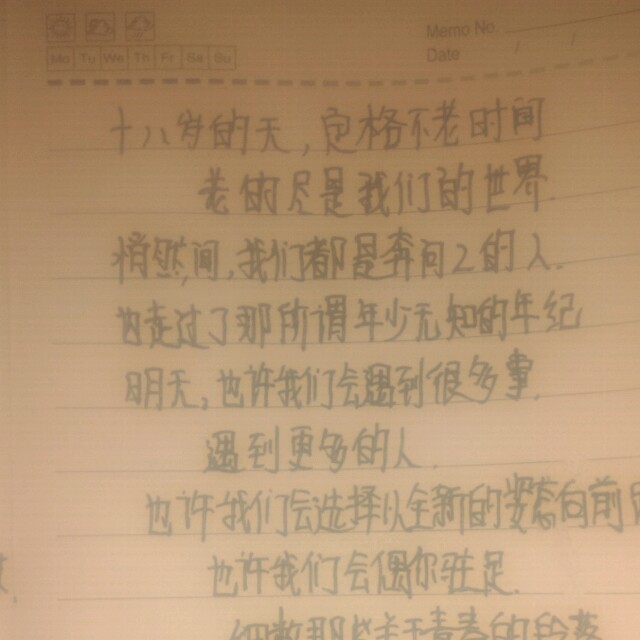 Memo No.
Mo Tu We Th Fr Sa Su
Date
十八岁的天,定格不老时间
老的尽是我们的世界.
悄然间,我们都是奔向2的人.
也走过了那所谓年少无知的年纪
明天,也许我们会遇到很多事.
遇到更多的人.
也许我们会选择以全新的姿态向前
也许我们会偶尔驻足.
细数那些关于青春的